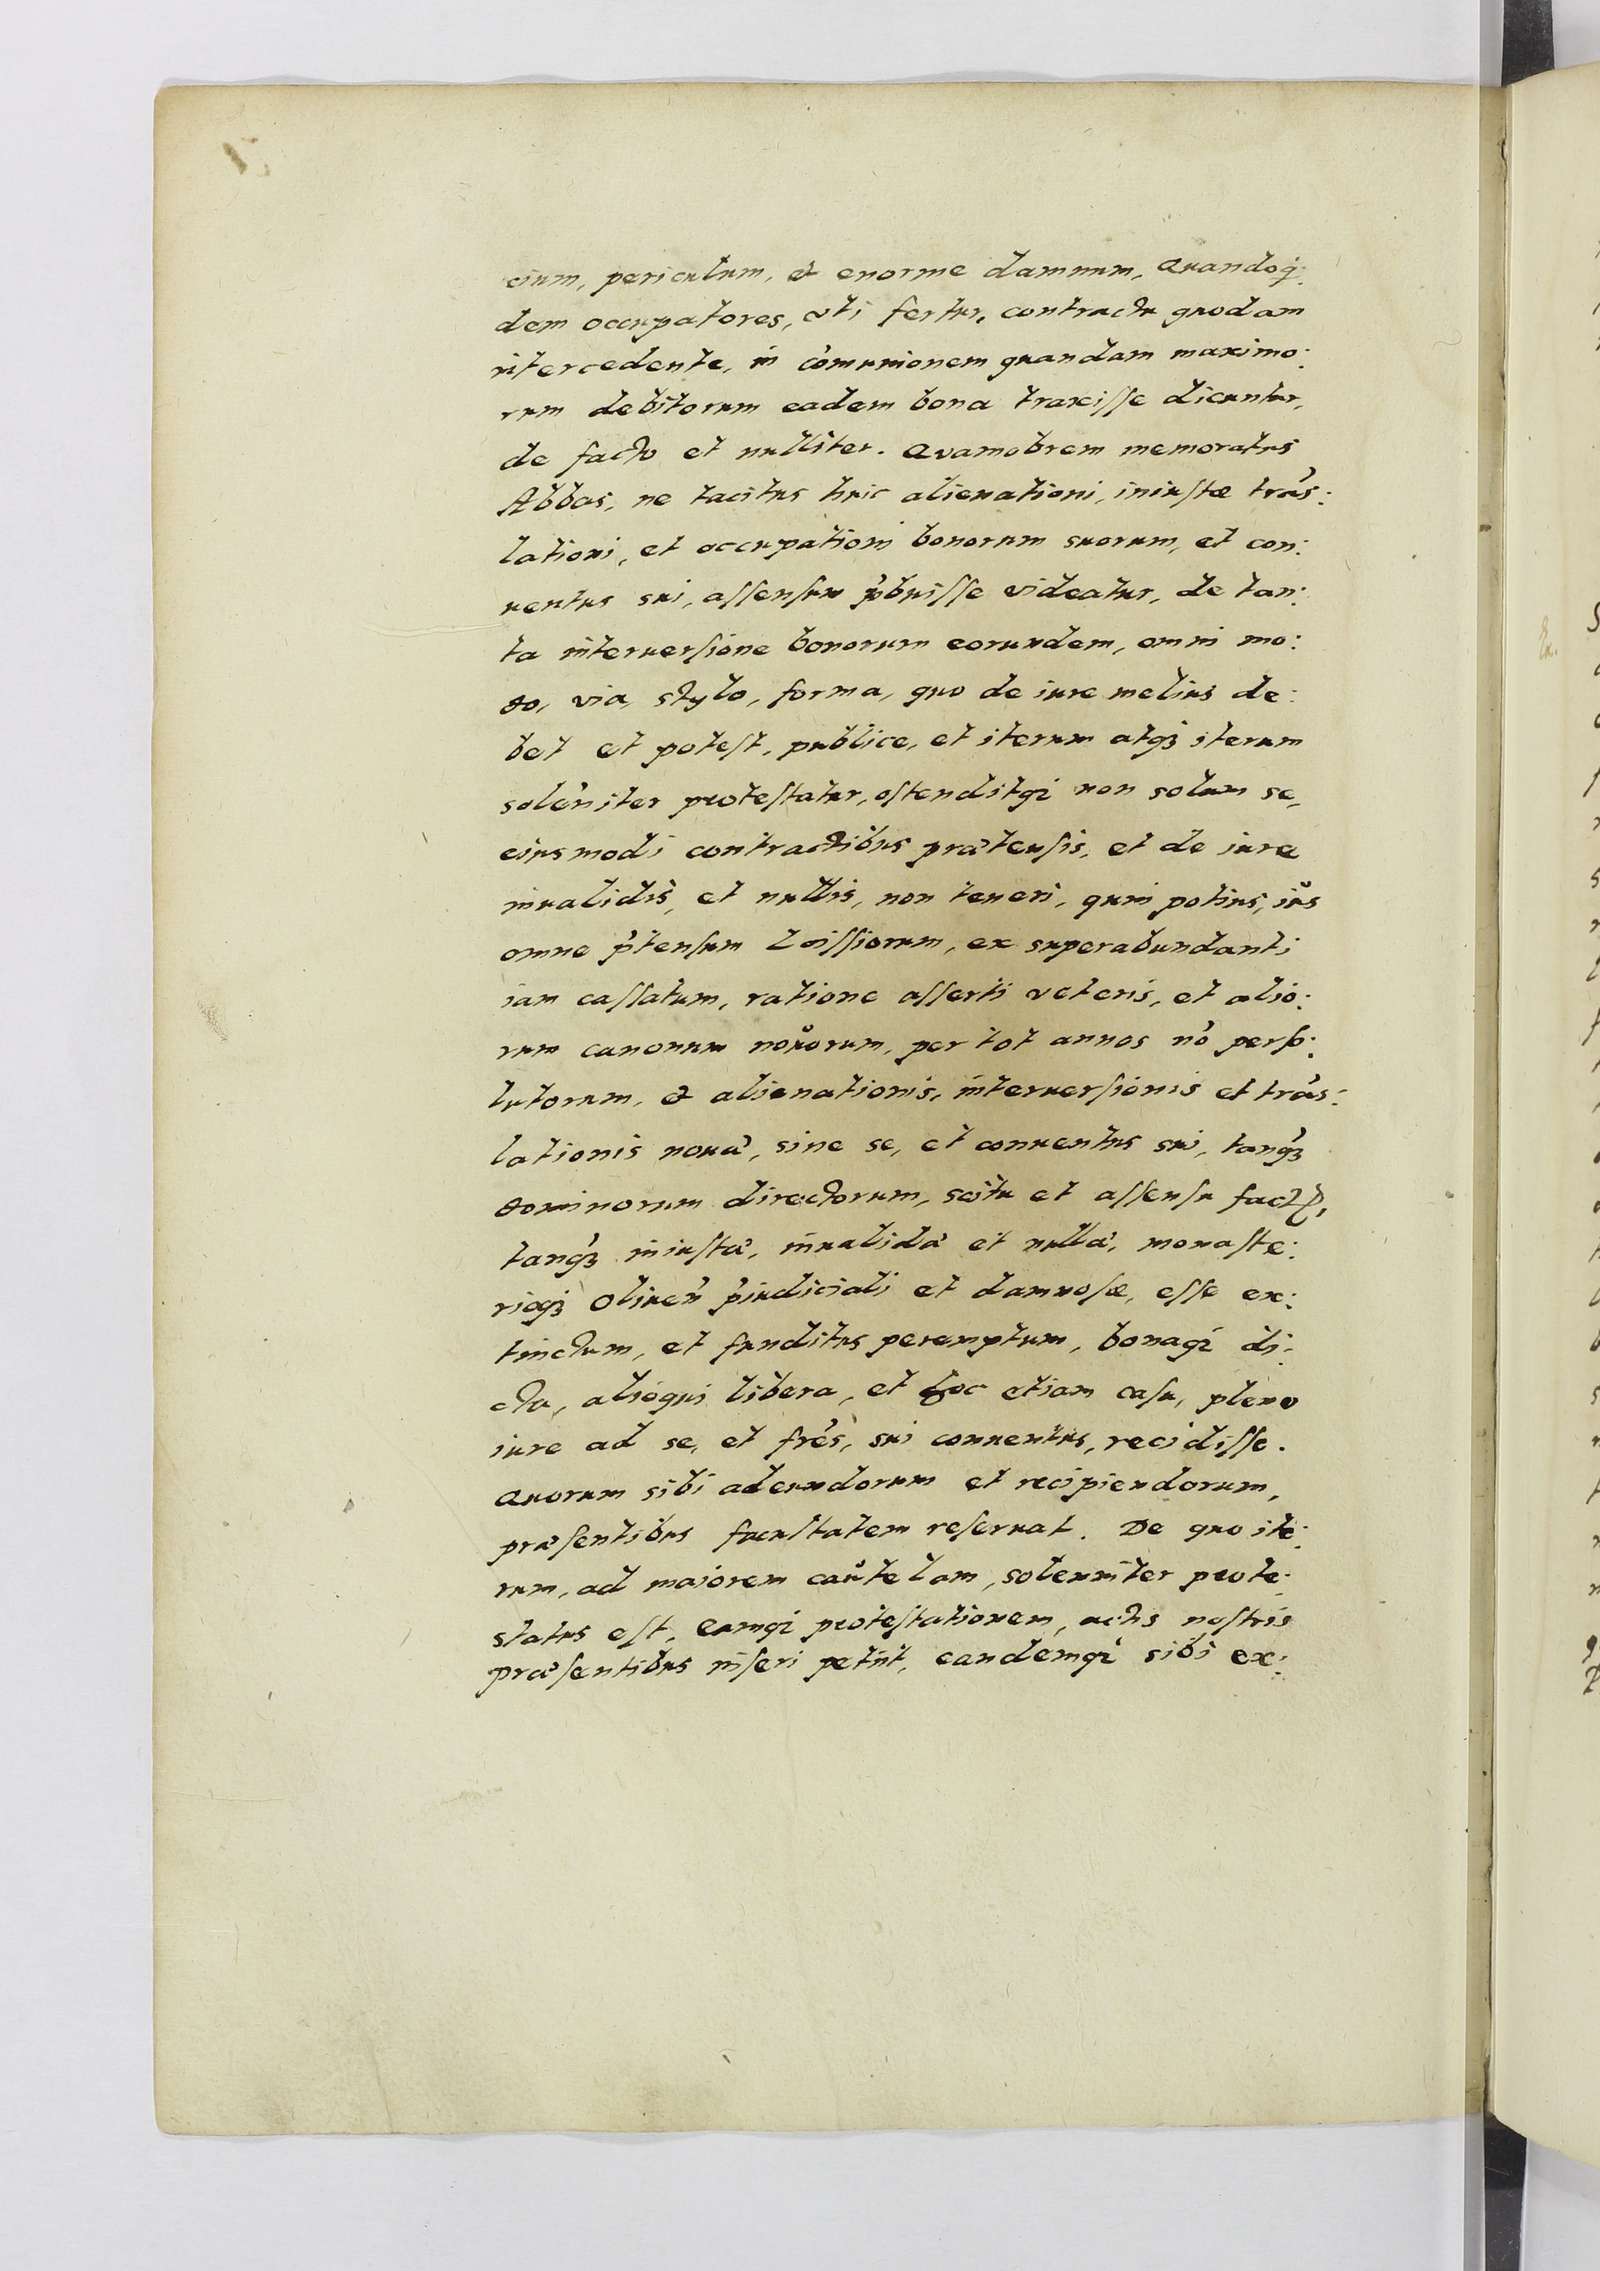 cium, periculum, et enorme damnum, Quandoq́:
dem occupatores, uti fertur, contractu quodam
intercedente, in com̃unionem quandam maximo:
rum debitorum eadem bona traxiſſe dicuntur,
de facto et nulliter. Quamobrem memoratus
Abbas, ne tacitus huic alienationi, iniuſtæ trãs:
lationi, et occupationi bonorum suorum, et con:
uentus sui, aſſenſum p̃buiſſe videatur, de tan:
ta interuerſione bonorum eorundem, omni mo:
do, via, stylo, forma, quo de iure melius de:
bet et poteſt, publice, et iterum atqꝫ iterum
solẽniter proteſtatur, oſtenditqꝫ non solum se,
eiusmodi contractibus prætenſis, et de iure
inualidis, et nullis, non teneri, quin potius, iŭs
omne p̃tenſum Loiſſiorum, ex superabundanti
iam caſſatum, ratione aſſerti veteris, et alio:
rum canonum nouorum, per tot annos nõ perſo:
lutorum, et alienationis, interuerſionis et trãs:
lationis nouæ, sine se, et conuentus sui, tanqꝫ
dominorum directorum, scitu et aſſenſu factæ,
tanqꝫ iniuſtæ, inualidæ et nullæ, monaſte:
rioqꝫ Oliueñ p̃iudiciali et damnoſæ, eſſe ex:
tinctum, et funditus peremptum, bonaqꝫ di:
cta, alioqui libera, et hoc etiam caſu, pleno
iure ad se, et frẽs, sui conuentus, recidiſſe.
Quorum sibi adeundorum et recipiendorum,
præſentibus facultatem reſeruat. De quo ite:
rum, ad maiorem caŭtelam, solenniter prote:
status eſt, eamqꝫ proteſtationem, actis noſtris
præſentibus inſeri petiit, eandemqꝫ sibi ex: